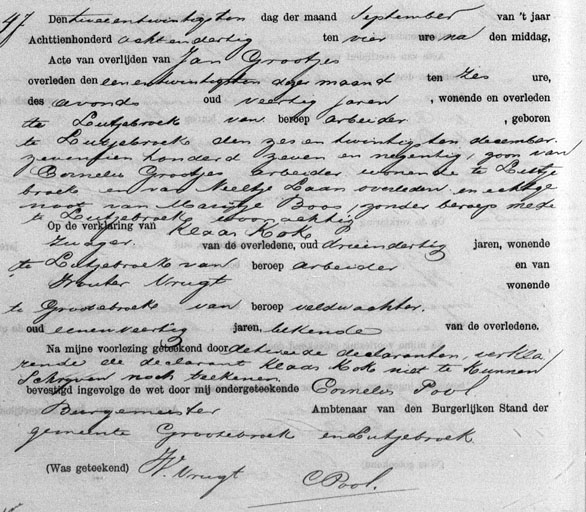 47 Den tweeentwintigsten dag der maand September van 't jaar
Achttienhonderd achtendertig ten vier ure na den middag,
Acte van overlijden van Jan Grootjes
overleden den eenentwintigsten dezer maand ten zes ure,
des avonds oud veertig jaren, wonende en overleden
te Lutjebroek van beroep arbeider, geboren
te Lutjebroek den zes en twintigsten december
zeventien honderd zeven en negentig, zoon van
Cornelis Grootjes arbeider wonende te Lutje
broek en van Neeltje Laan overleden, en echtge
noot van Maartje Boos, zonder beroep mede
te Lutjebroek woonachtig
Op de verklaring van Klaas Kok
zwager van de overledene, oud drieendertig jaren, wonende
te Lutjebroek van beroep arbeider en van
Wouter Vrugt wonende
te Grootebroek van beroep veldwachter.
oud eenenveertig jaren, bekende van de overledene.
Na mijne voorlezing geteekend door de tweede declaranten, verkla
rende de declarant Klaas Kok niet te kunnen
Schrijven noch teekenen
bevestigd ingevolge de wet door mij ondergeteekende Cornelis Pool
Burgemeister Ambtenaar van den Burgerlijken Stand der
gemeente Grootebroek en Lutjebroek
(Was geteekend) W. Vrugt
C Pool.